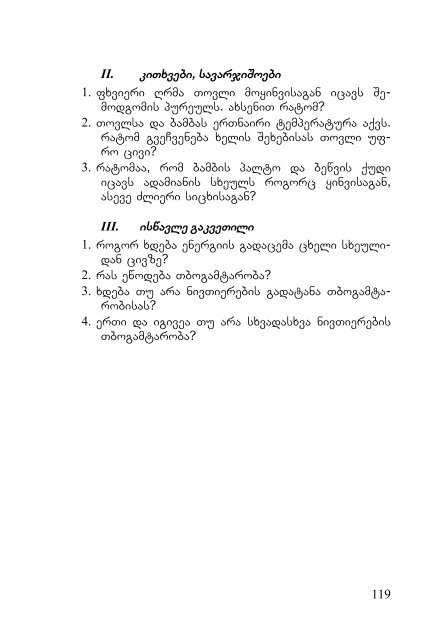 II. კითხვები, სავარჯიშოები
1. ფხვიერი ღრმა თოვლი მოყინვისაგან იცავს შე-
მოდგომის პურეულს. ახსენით რატომ?
2. თოვლსა და ბამბას ერთნაირი ტემპერატურა აქვს.
რატომ გვეჩვენება ხელის შეხებისას თოვლი უფ-
რო ცივი?
3. რატომაა, რომ ბამბის პალტო და ბეწვის ქუდი
იცავს ადამიანის სხეულს როგორც ყინვისაგან,
ასევე ძლიერი სიცხისაგან?
III. ისწავლე გაკვეთილი
1. როგორ ხდება ენერგიის გადაცემა ცხელი სხეული-
დან ცივზე?
2. რას ეწოდება თბოგამტარობა?
3. ხდება თუ არა ნივთიერების გადატანა თბოგამტა-
რობისას?
4. ერთი და იგივეა თუ არა სხვადასხვა ნივთიერების
თბოგამტარობა?
119